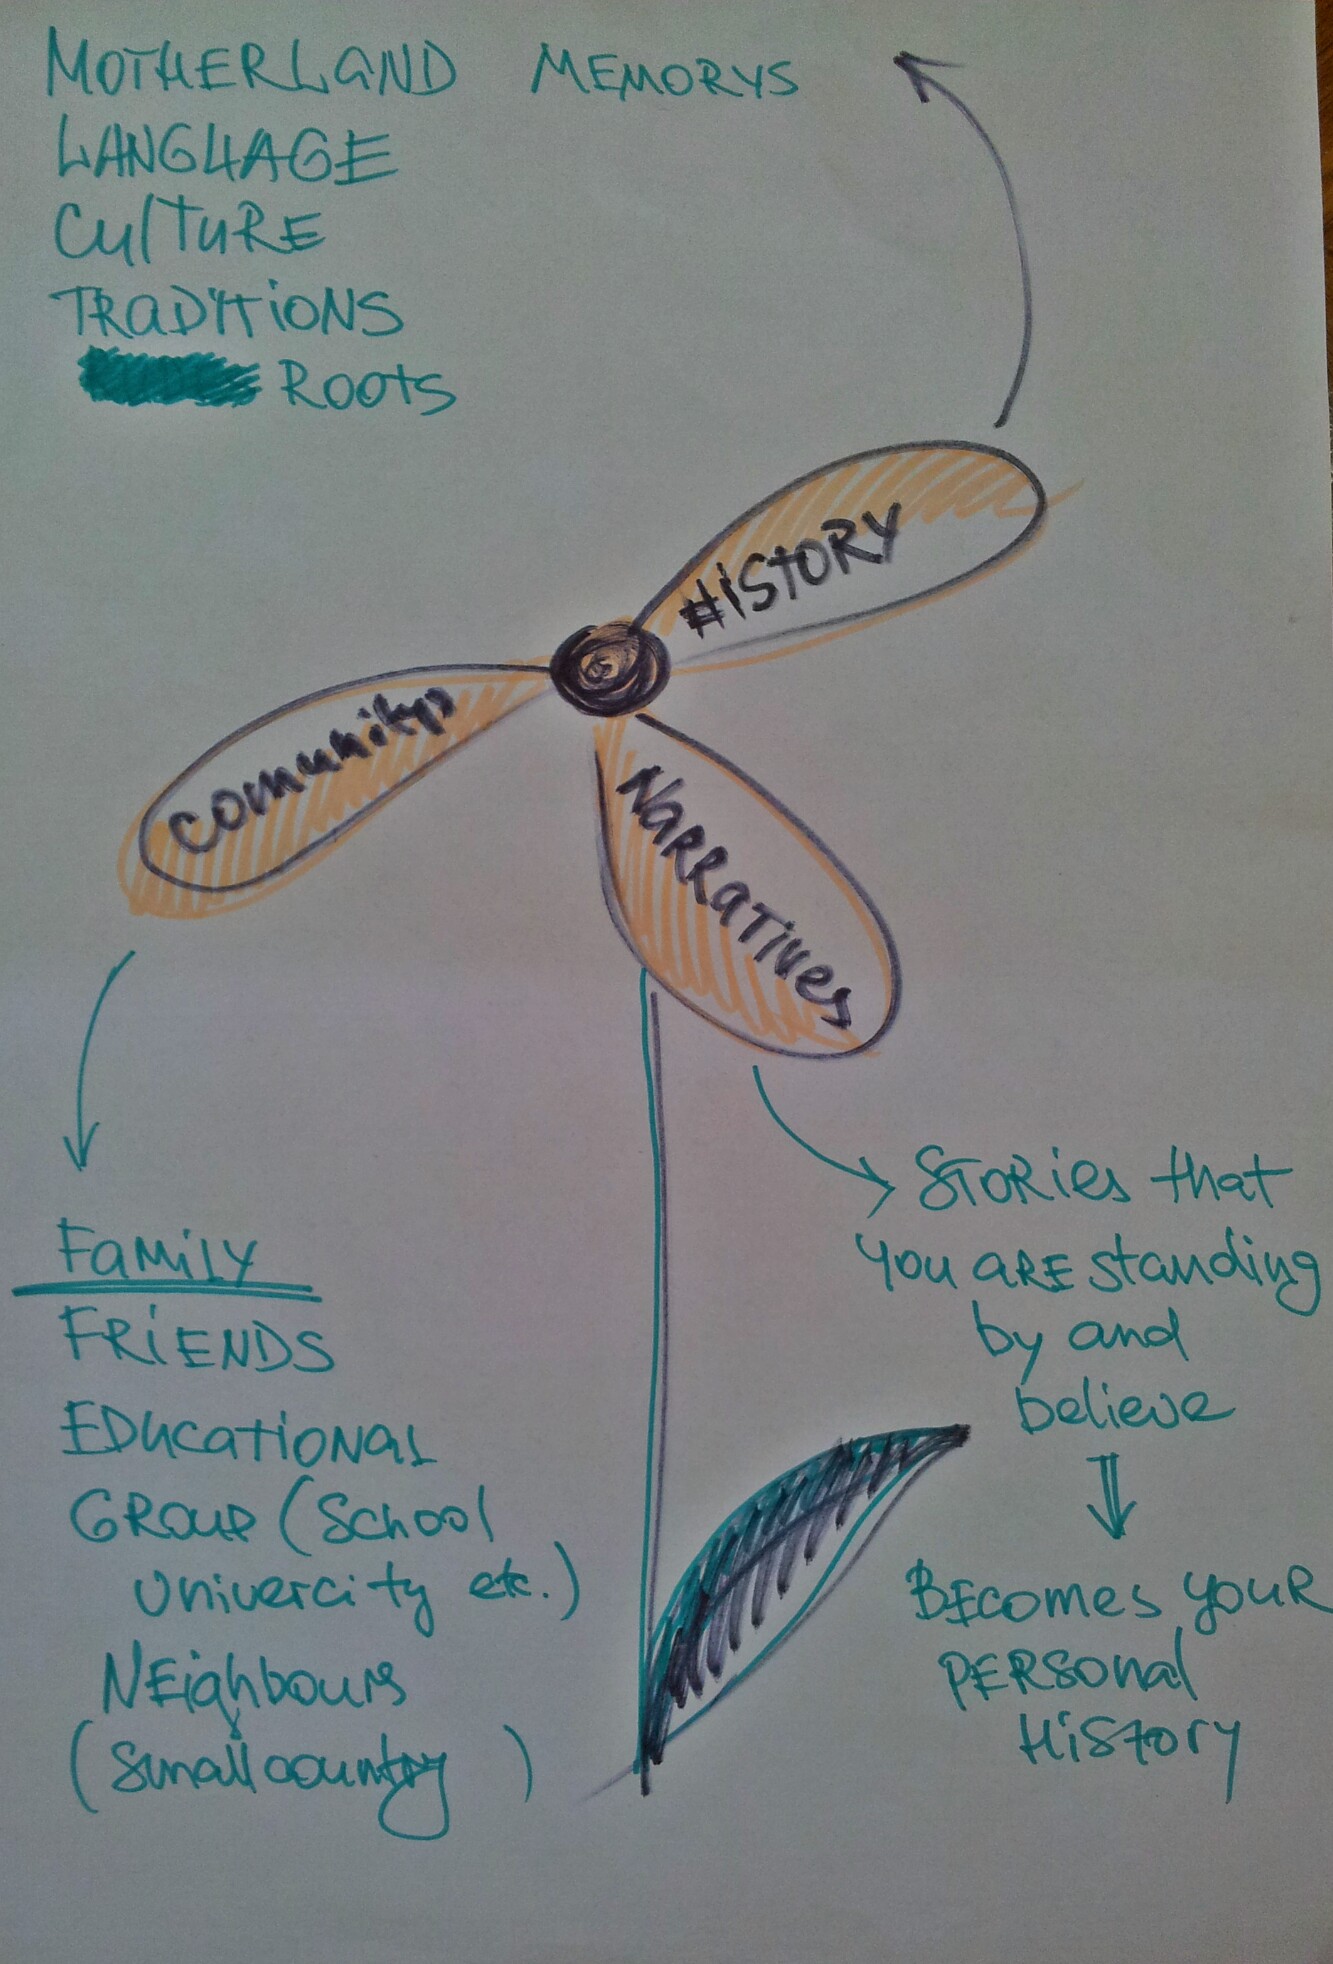 MOTHERLAND MEMORYS
LANGUAGE
CULTURE
TRADITIONS
ROOTS
HISTORY
Comunitys
NARRATIVES
STORIES that
YOU ARE standing
by and
believe
BECOMES YOUR
PERSONAL
HISTORY
FAMILY
FRIENDS
EDUCATIONAL
GROUP (SCHOOL
UNIVERCITY etc.)
NEIGHBOURS
(Small country)